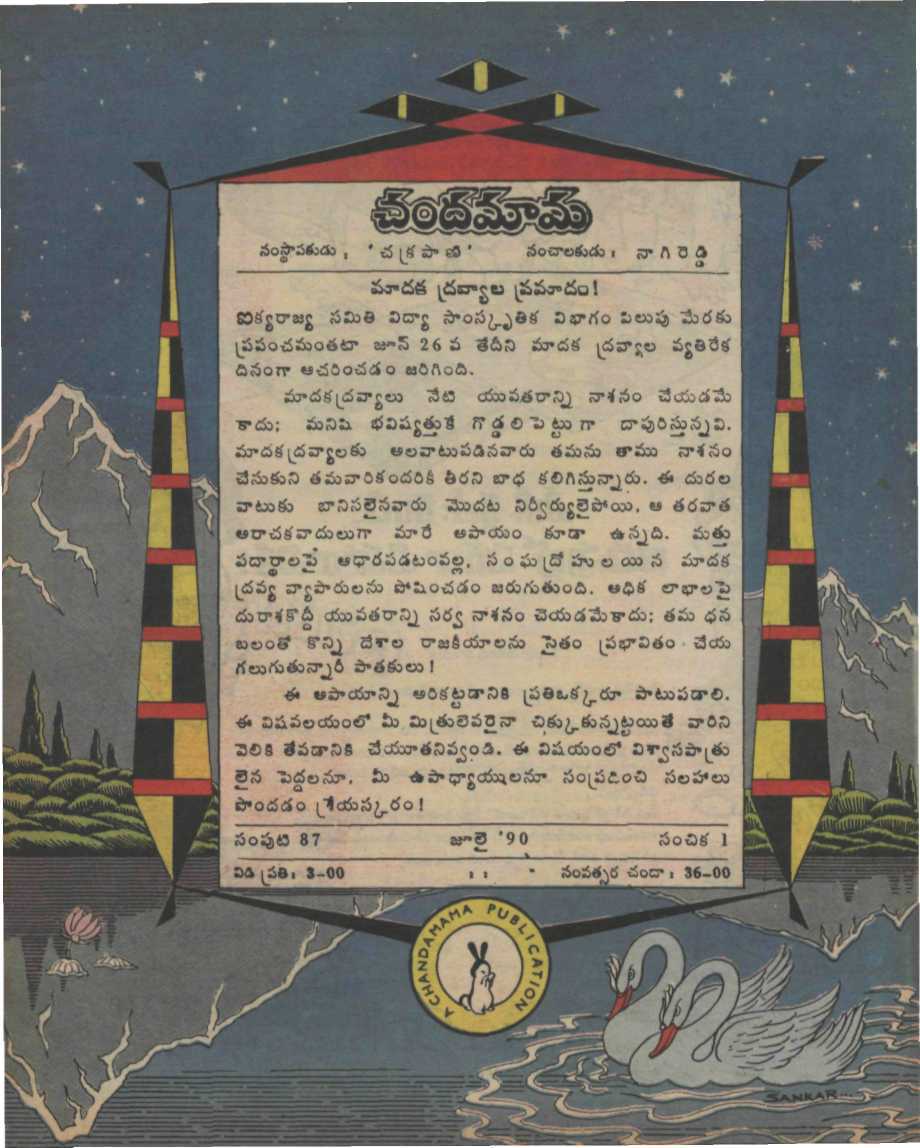 చందమామ
సంస్థాపకుడు : 'చక్రపాణి' సంచాలకుడు : నాగిరెడ్డి
మాదక ద్రవ్యాల ప్రమాదం!
ఐక్యరాజ్య సమితి విద్యా సాంస్కృతిక విభాగం పిలుపు మేరకు
ప్రపంచమంతటా జూన్ 26 వ తేదీని మాదక ద్రవ్యాల వ్యతిరేక
దినంగా ఆచరించడం జరిగింది.
మాదకద్రవ్యాలు నేటి యువతరాన్ని నాశనం చేయడమే
కాదు; మనిషి భవిష్యత్తుకే గొడ్డలిపెట్టుగా దాపురిస్తున్నవి.
మాదకద్రవ్యాలకు అలవాటుపడినవారు తమను తాము నాశనం
చేసుకుని తమవారికందరికీ తీరని బాధ కలిగిస్తున్నారు. ఈ దురల
వాటుకు బానిసలైనవారు మొదట నిర్వీర్యులైపోయి, ఆ తరవాత
అరాచకవాదులుగా మారే అపాయం కూడా ఉన్నది. మత్తు
పదార్థాలపై ఆధారపడటంవల్ల, సంఘద్రోహులయిన మాదక
ద్రవ్య వ్యాపారులను పోషించడం జరుగుతుంది. అధిక లాభాలపై
దురాశకొద్దీ యువతరాన్ని సర్వ నాశనం చెయడమేకాదు; తమ ధన
బలంతో కొన్ని దేశాల రాజకీయాలను సైతం ప్రభావితం చేయ
గలుగుతున్నారీ పాతకులు!
ఈ అపాయాన్ని అరికట్టడానికి ప్రతిఒక్కరూ పాటుపడాలి.
ఈ విషవలయంలో మీ మిత్రులెవరైనా చిక్కుకున్నట్టయితే వారిని
వెలికి తేవడానికి చేయూతనివ్వండి. ఈ విషయంలో విశ్వాసపాత్రు
లైన పెద్దలనూ, మీ ఉపాధ్యాయులనూ సంప్రదించి సలహాలు
పొందడం శ్రేయస్కరం!
సంపుటి 87 జూలై '90 సంచిక 1
విడి ప్రతి: 3-00 : : సంవత్సర చందా : 36-00
A CHANDAMAMA PUBLICATION
SANKAR...